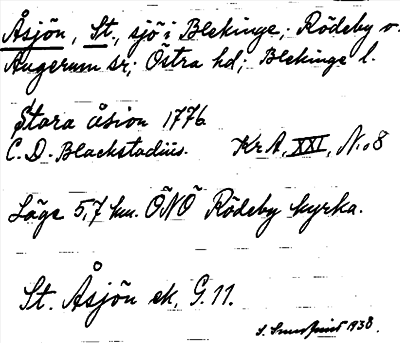 Åsjön, St., sjö i Blekinge; Rödeby o.
Augerum sr; Östra hd; Blekinge l.
Stora åsion 1776
C. D. Blackstadius. KrA, XXI, N:o 8
Läge 5,7 km. ÖNÖ Rödeby kyrka.
St. Åsjön ek, G. 11.
1938